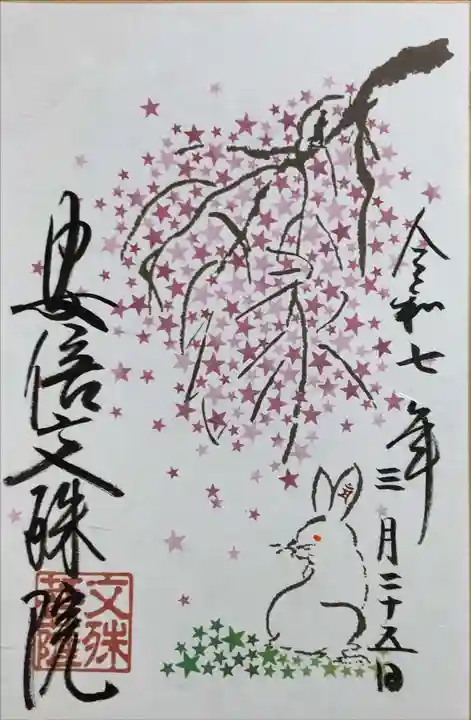 令和七年三月二十五日
安倍文殊院
文殊
菩薩